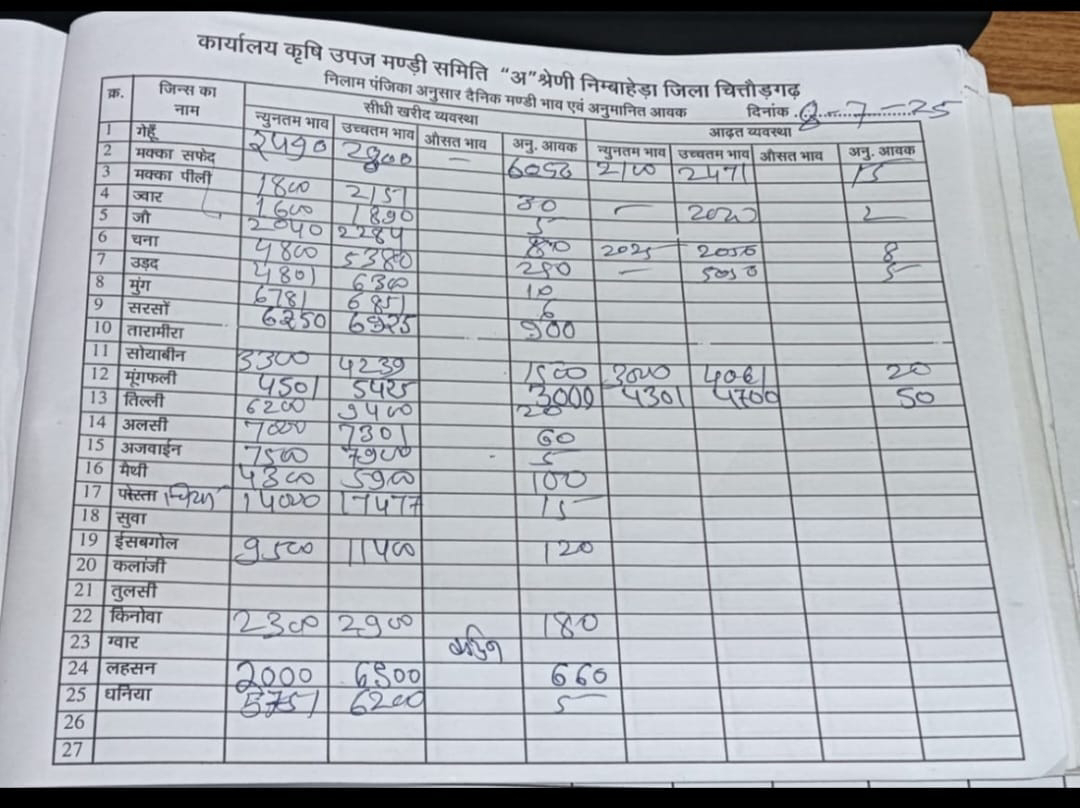 कार्यालय कृषि उपज मण्डी समिति "अ" श्रेणी निम्बाहेड़ा जिला चित्तौड़गढ़
निलाम पंजिका अनुसार दैनिक मण्डी भाव एवं अनुमानित आवक दिनांक 8-7-25
क्र. जिन्स का नाम सीधी खरीद व्यवस्था आढ़त व्यवस्था
न्युनतम भाव उच्चतम भाव औसत भाव अनु. आवक न्युनतम भाव उच्चतम भाव औसत भाव अनु. आवक
1 गेहूँ 2490 2900 — 6050 2100 2471 15
2 मक्का सफेद
3 मक्का पीली 1800 2157 30 — 2020 2
4 ज्वार 1600 1890 5
5 जौ 2040 2284 800 2025 2050 8
6 चना 4800 5380 250 — 5050 5
7 उड़द 4801 6300 10
8 मुंग 6781 6851 6
9 सरसों 6250 6925 900
10 तारामीरा
11 सोयाबीन 3300 4239 1500 3000 4061 20
12 मूंगफली 4501 5425 3000 4301 4700 50
13 तिल्ली 6200 9400 20
14 अलसी 7000 7301 60
15 अजवाईन 7500 7900 5
16 मैथी 4300 5900 100
17 14000 17477 15
18 सुवा
19 ईसबगोल 9500 11400 120
20 कलांजी
21 तुलसी
22 किनोवा 2300 2900 180
23 ग्वार
24 लहसन 2000 6500 660
25 धनिया 5751 6200 5
26
27